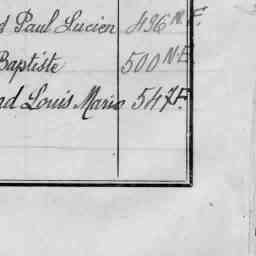 d Paul Lucien 496 N.F.
Baptiste 500 N.F.
nd Louis Mario 547 F.